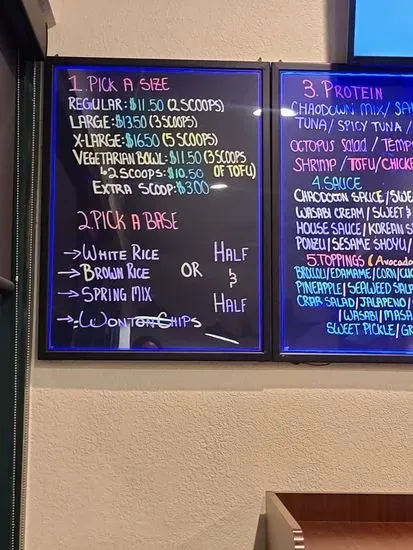 1. PICK A SIZE
REGULAR: $11.50 (2 SCOOPS)
LARGE: $13.50 (3 SCOOPS)
X-LARGE: $16.50 (5 SCOOPS)
VEGETARIAN BOWL: $11.50 (3 SCOOPS
↳2 SCOOPS: $10.50 OF TOFU)
EXTRA SCOOP: $3.00
2. PICK A BASE
→ WHITE RICE
→ BROWN RICE
→ SPRING MIX
→ WONTON CHIPS
OR
HALF
&
HALF
3. PROTEIN
CHAODOWN MIX /
TUNA / SPICY TUNA /
OCTOPUS SALAD /
SHRIMP / TOFU /
4. SAUCE
CHAODOWN SAUCE /
WASABI CREAM / SWEET &
HOUSE SAUCE / KOREAN
PONZU / SESAME SHOYU /
5. TOPPINGS
BROCOLI / EDAMAME / CORN /
PINEAPPLE / SEAWEED
CRAB SALAD / JALAPENO /
/ WASABI /
SWEET PICKLE /